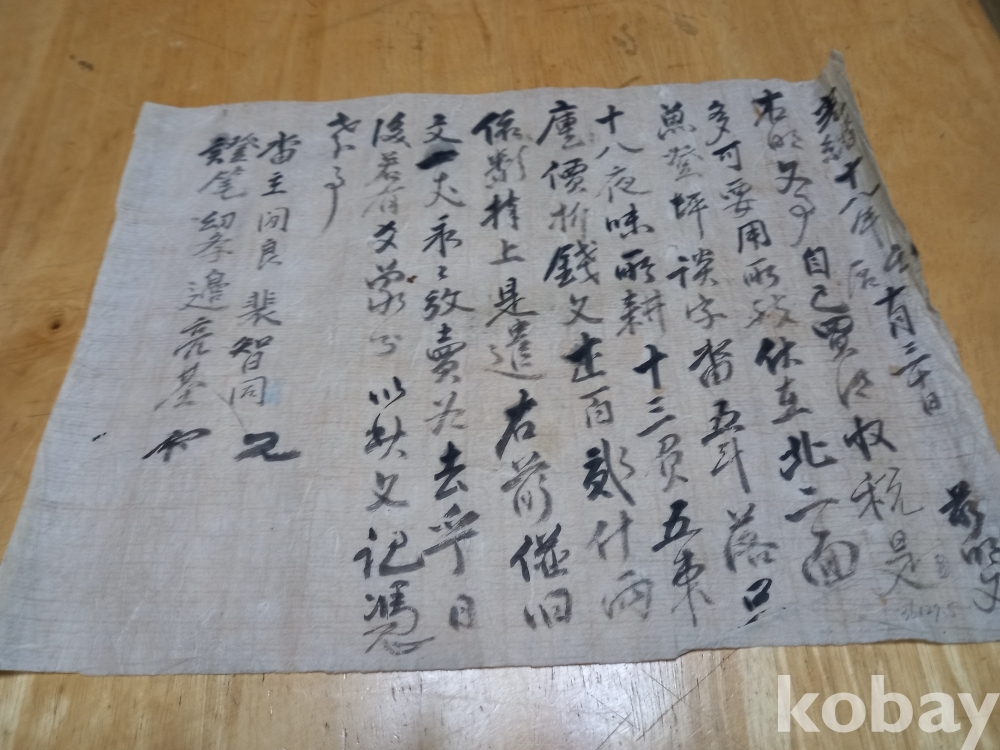 光緒十八年 十月二十日 前明文
右明文事 自己買得收稅是
多可要用所致伏在北二面
坪談字畓五斗落只
十八夜味所耕十三負五束
價折錢文壹百貳什兩
依數捧上是遣右前 旧
文一丈永〻放賣爲去乎日
後若有 以此文記憑
考事
畓主 閑良 裵智同
證筆 幼學 邊亮基
kobay